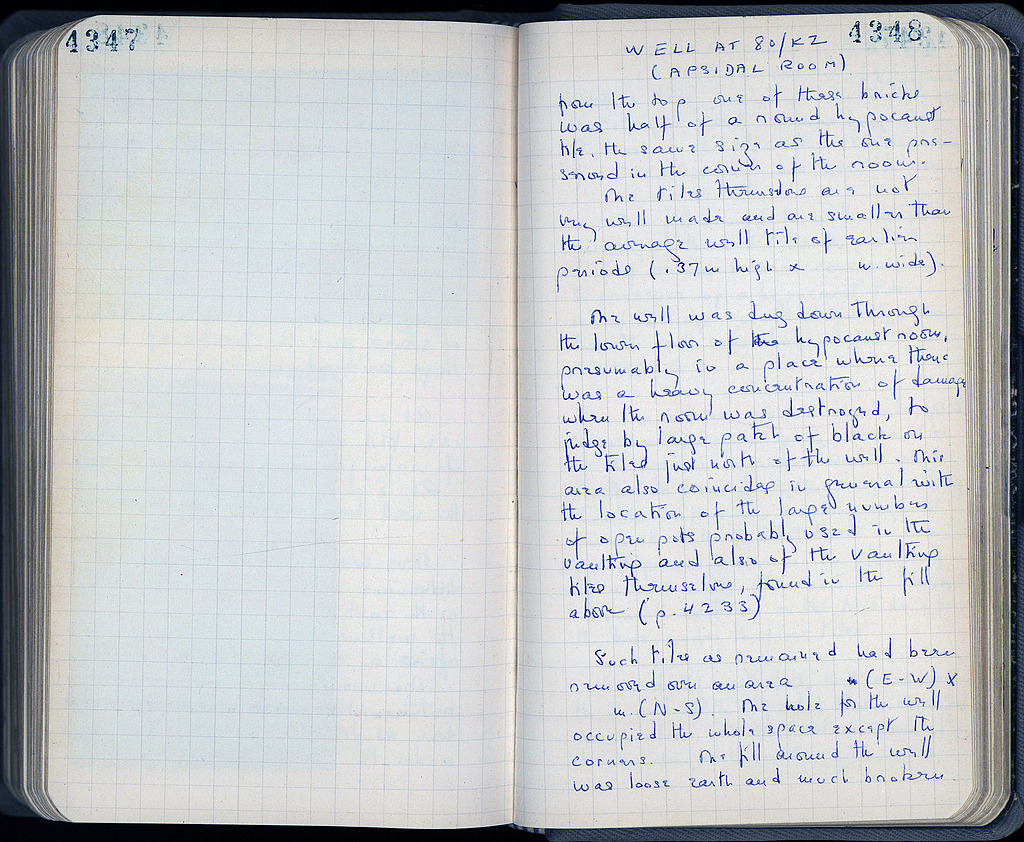 4347
4348
WELL AT 80/KZ
(APSIDAL ROOM)
from the top one of these bricks
was half of a round hypocaust
tile, the same size as the one pre-
served in the corner of the room.
The tiles themselves are not
very well made and are smaller than
the average well tile of earlier
periods (.37m high x m. wide).
The well was dug down through
the lower floor of the hypocaust room,
presumably in a place where there
was a heavy concentration of damage
when the room was destroyed, to
judge by large patch of black on
the tiles just north of the well. This
area also coincides in general with
the location of the large numbers
of open pots probably used in the
vaulting and also of the vaulting
tiles themselves, found in the fill
above (p. 4233)
Such tiles as remained had been
removed over an area (E-W) x
m. (N-S). The hole for the well
occupied the whole space except the
corners. The fill around the well
was loose earth and much broken